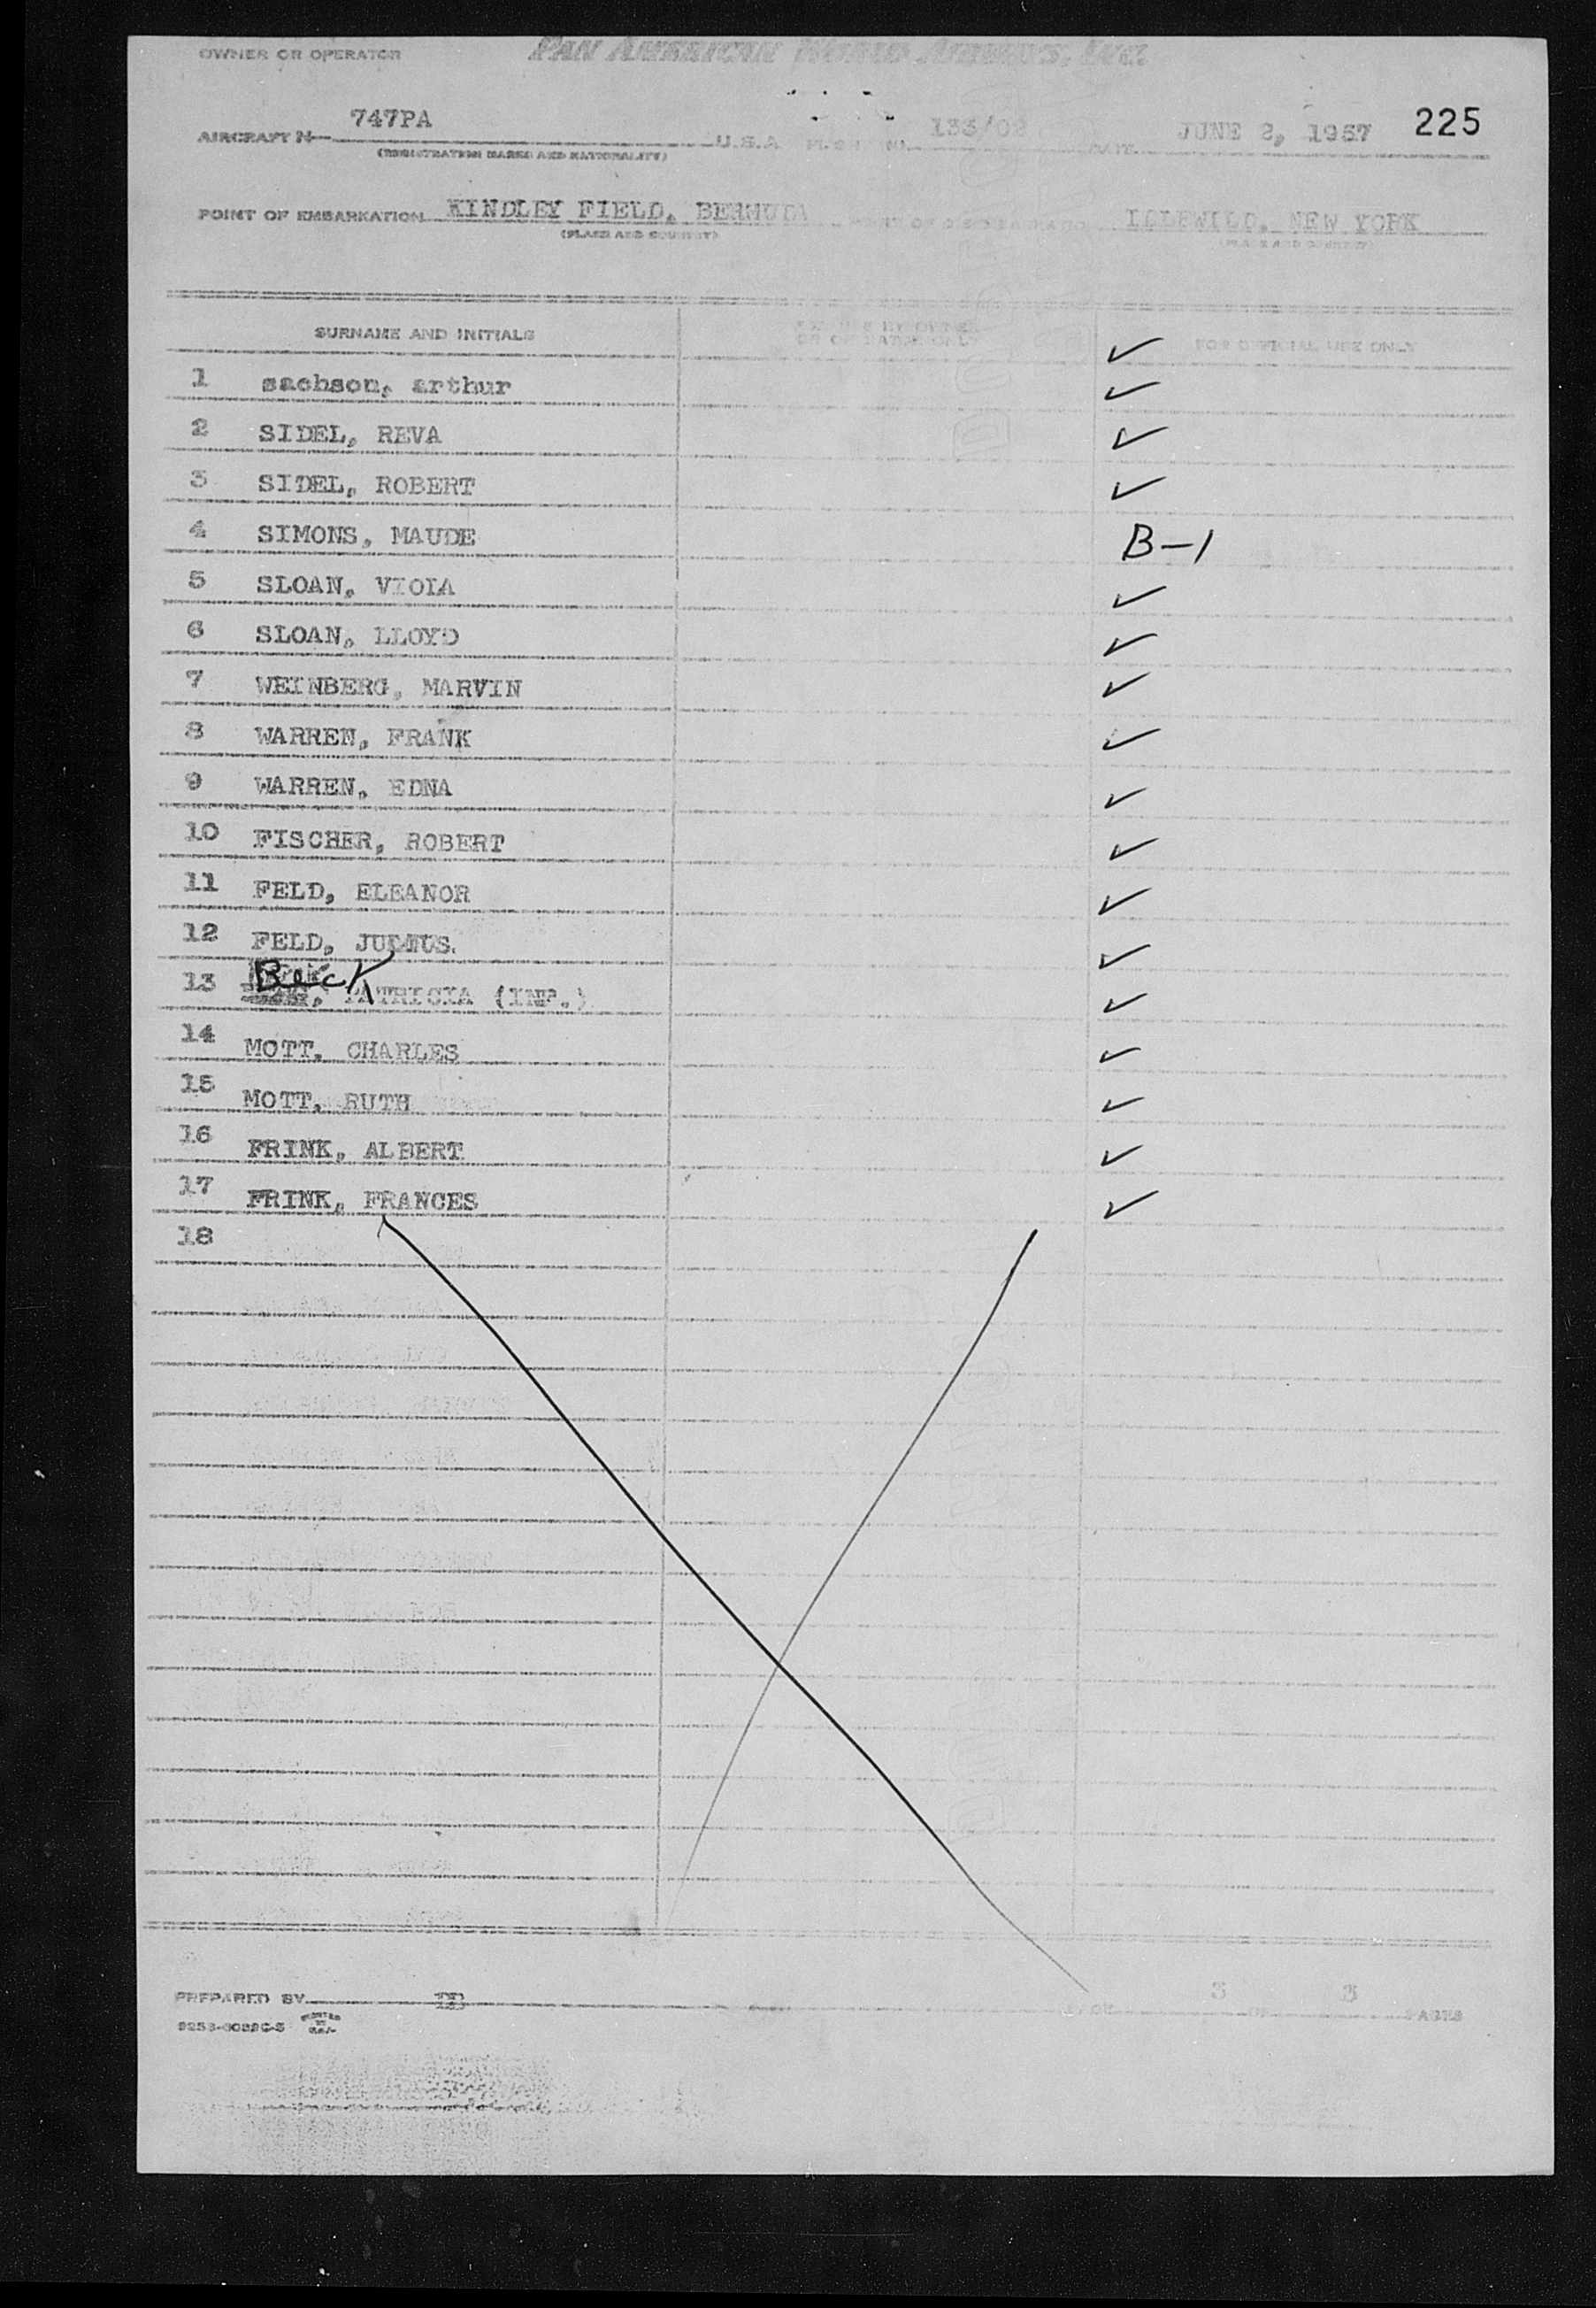 OWNER OR OPERATOR PAN AMERICAN WORLD AIRWAYS, INC.
747PA 133/02 JUNE 2, 1957 225
AIRCRAFT N U.S.A. FLIGHT NO. DATE
(REGISTRATION MARKS AND NATIONALITY)
POINT OF EMBARKATION KINDLEY FIELD, BERMUDA IDLEWILD, NEW YORK
(PLACE AND COUNTRY) (PLACE AND COUNTRY)
SURNAME AND INITIALS FOR OFFICIAL USE ONLY
✓
1 sachson, arthur ✓
2 SIDEL, REVA ✓
3 SIDEL, ROBERT ✓
4 SIMONS, MAUDE B-1
5 SLOAN, VIOLA ✓
6 SLOAN, LLOYD ✓
7 WEINBERG, MARVIN ✓
8 WARREN, FRANK ✓
9 WARREN, EDNA ✓
10 FISCHER, ROBERT ✓
11 FELD, ELEANOR ✓
12 FELD, JULIUS. ✓
13 Beck, PATRICIA (INF.) ✓
14 MOTT, CHARLES ✓
15 MOTT, RUTH ✓
16 FRINK, ALBERT ✓
17 FRINK, FRANCES ✓
18
PREPARED BY 3 OF 3 PAGES
PRINTED IN U.S.A.